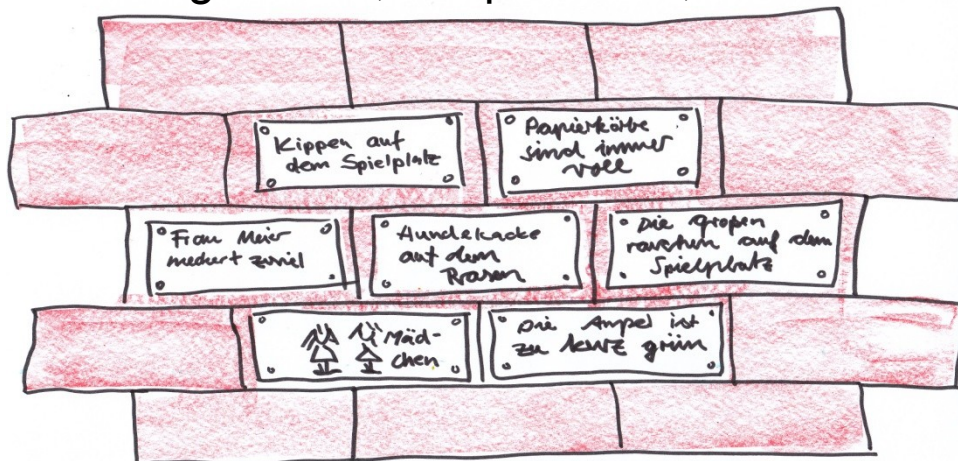 Kippen auf
dem Spielplatz
Papierkörbe
sind immer
voll
Frau Meier
meckert zuviel
Hundekacke
auf dem
Rasen
Die großen
rauchen auf dem
Spielplatz
Mäd-
chen
Die Ampel ist
zu kurz grün